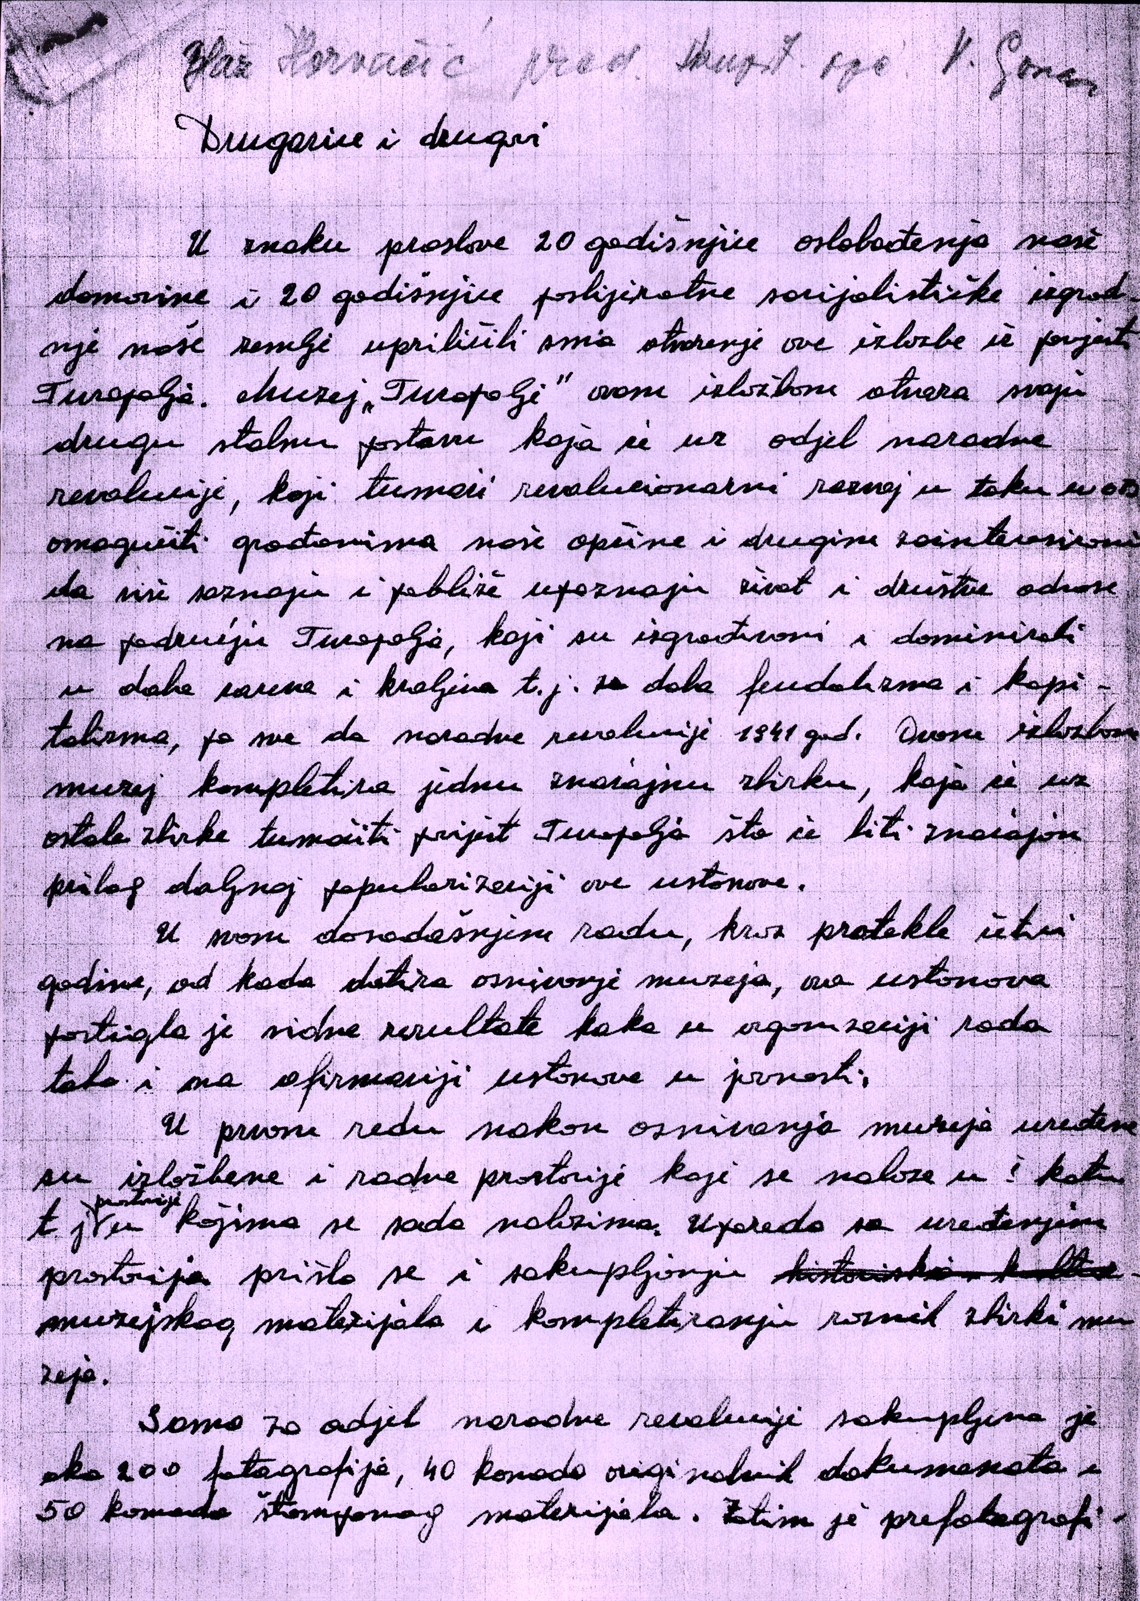 Blaž Horvačić pred. Skupšt. opć. V. Gorica
Drugarice i drugovi
U znaku proslove 20 godišnjice oslobođenja naše
domovine i 20 godišnjice poslijeratne socijalističke izgrad-
nje naše zemlje upriličili smo otvorenje ove izložbe iz povjesti
Turopolja. Muzej „Turopolje" ovom izložbom otvara svoju
drugu stalnu postavu koja će uz odjel narodne
revolucije, koji tumači revolucionarni razvoj u toku
omogućiti građanima naše općine i drugim zainteresirani
da više saznaju i pobliže upoznaju život i društve odnose
na području Turopolja, koji su izgrađivani i dominirali
u doba careva i kraljeva t.j. za doba feudalizma i kapi-
talizma, pa sve da narodne revolucije 1941 god. Ovom izložbom
muzej kompletira jednu značajnu zbirku, koja će uz
ostale zbirke tumačiti povjest Turopolja što će biti značajan
prilog daljnoj popularizaciji ove ustanove.
U svom dosadašnjem radu, kroz protekle četiri
godine, od kada datira osnivanje muzeja, ova ustanova
postigla je vidne rezultate kako u organizaciji rada
tako i na afirmaciji ustanove u javnosti.
U prvom redu nakon osnivanja muzeja uređene
su izložbene i radne prostorije koje se nalaze u I katu
prostorije
t j u kojima se sada nalazimo. Uporedo sa uređenjem
prostorija prišlo se i sakupljanju historisko kultur-
muzejskog materijala i kompletiranju raznih zbirki mu
zeja.
Samo za odjel narodne revolucije sakupljeno je
oko 200 fotografija, 40 komada originalnih dokumenata i
50 komada štampanog materijala. Zatim je prefotografi-